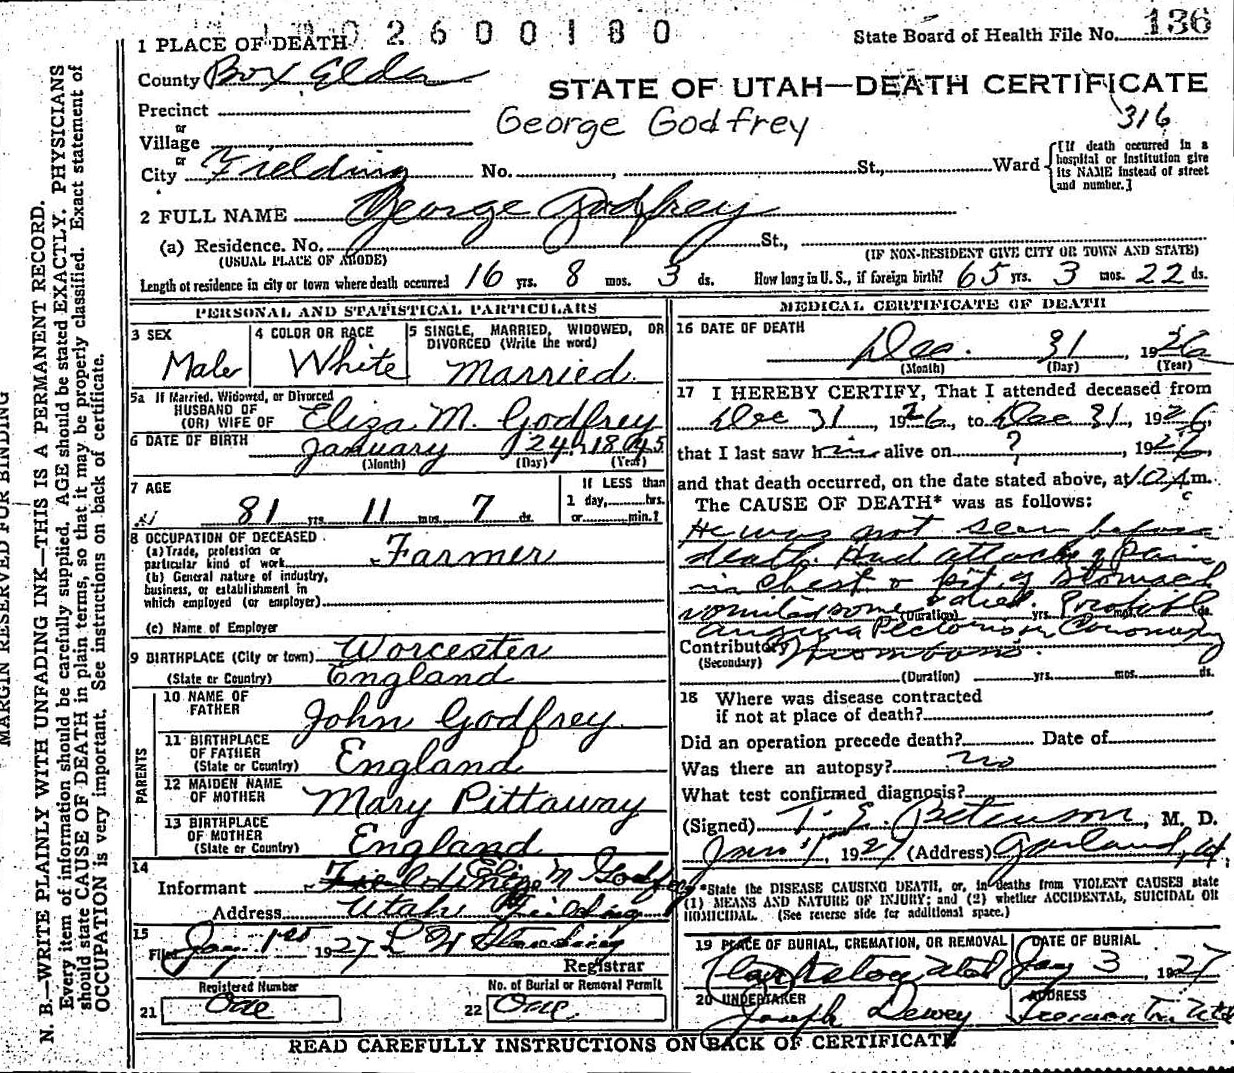 2600180
State Board of Health File No. 136
1 PLACE OF DEATH
County Box Elder
STATE OF UTAH—DEATH CERTIFICATE
Precinct
316
or
George Godfrey
Village
or
City Fielding No. , St., Ward
[If death occurred in a hospital or institution give its NAME instead of street and number.]
2 FULL NAME George Godfrey
(a) Residence. No. St.,
(USUAL PLACE OF ABODE) (IF NON-RESIDENT GIVE CITY OR TOWN AND STATE)
Length of residence in city or town where death occurred 16 yrs. 8 mos. 3 ds. How long in U.S., if foreign birth? 65 yrs. 3 mos. 22 ds.
PERSONAL AND STATISTICAL PARTICULARS
3 SEX
Male
4 COLOR OR RACE
White
5 SINGLE, MARRIED, WIDOWED, OR
DIVORCED (Write the word)
Married
5a If Married, Widowed, or Divorced
HUSBAND OF
(OR) WIFE OF Eliza M. Godfrey
6 DATE OF BIRTH
January 24 1845
(Month) (Day) (Year)
7 AGE
81 yrs. 11 mos. 7 ds.
If LESS than
1 day, hrs.
or min.?
8 OCCUPATION OF DECEASED
(a) Trade, profession or
particular kind of work Farmer
(b) General nature of industry,
business, or establishment in
which employed (or employer)
(c) Name of Employer
9 BIRTHPLACE (City or town) Worcester
(State or Country) England
PARENTS
10 NAME OF
FATHER John Godfrey
11 BIRTHPLACE
OF FATHER
(State or Country) England
12 MAIDEN NAME
OF MOTHER Mary Pittaway
13 BIRTHPLACE
OF MOTHER
(State or Country) England
14
Informant Eliza M Godfrey
Address Utah Fielding
15
Filed Jany 1st 1927 L W Standing
Registrar
Registered Number
21 One
No. of Burial or Removal Permit
22 One
MEDICAL CERTIFICATE OF DEATH
16 DATE OF DEATH
Dec. 31, 1926
(Month) (Day) (Year)
17 I HEREBY CERTIFY, That I attended deceased from
Dec 31, 1926, to Dec 31, 1926,
that I last saw him alive on ?, 192
and that death occurred, on the date stated above, at 10 A m.
The CAUSE OF DEATH* was as follows:
He was not seen before
death. Had attack of pain
in chest & pit of stomach
vomited some & died. Probable
(Duration) yrs. mos. ds.
Angina Pectoris or Coronary
Contributory Thrombosis.
(Secondary)
(Duration) yrs. mos. ds.
18 Where was disease contracted
if not at place of death?
Did an operation precede death? Date of
Was there an autopsy? no
What test confirmed diagnosis?
(Signed) T. E. Peterson, M. D.
Jan 1927 (Address) Garland, Ut.
*State the DISEASE CAUSING DEATH, or, in deaths from VIOLENT CAUSES state
(1) MEANS AND NATURE OF INJURY; and (2) whether ACCIDENTAL, SUICIDAL OR
HOMICIDAL. (See reverse side for additional space.)
19 PLACE OF BURIAL, CREMATION, OR REMOVAL
Clarkston Utah
DATE OF BURIAL
Jany 3 1927
20 UNDERTAKER
Joseph Dewey
ADDRESS
Tremonton Utah
READ CAREFULLY INSTRUCTIONS ON BACK OF CERTIFICATE
MARGIN RESERVED FOR BINDING
N. B.—WRITE PLAINLY WITH UNFADING INK—THIS IS A PERMANENT RECORD.
Every item of information should be carefully supplied. AGE should be stated EXACTLY. PHYSICIANS
should state CAUSE OF DEATH in plain terms, so that it may be properly classified. Exact statement of
OCCUPATION is very important. See instructions on back of certificate.